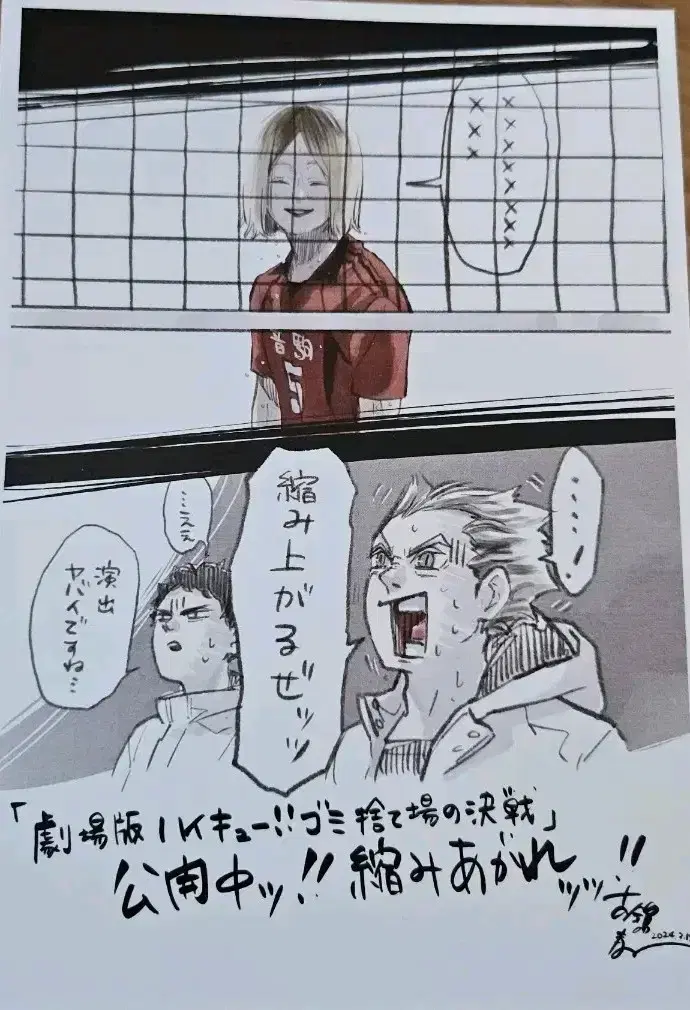 ×××××××
×××
音駒
5
……!
縮み上がるぜッッ
…ええ
演出
ヤバイですね…
「劇場版ハイキュー!!ゴミ捨て場の決戦」
公開中ッ!!縮みあがれッッ!!
古舘
春一